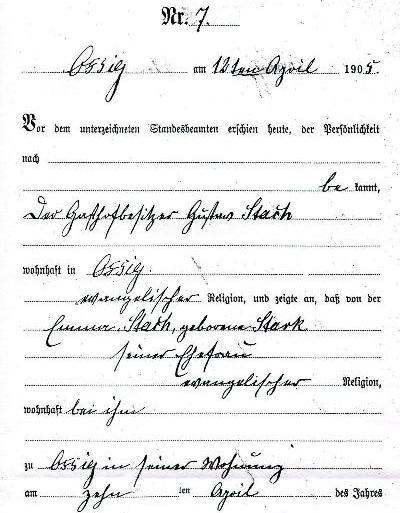 Nr. 7.
Ossig am 12ten April 1905.
Vor dem unterzeichneten Standesbeamten erschien heute, der Persönlichkeit
nach
bekannt,
der Gasthofbesitzer Gustav Stach
wohnhaft in Ossig.
evangelischer Religion, und zeigte an, daß von der
Emma Stach, geborene Stark
seiner Ehefrau
evangelischer Religion,
wohnhaft bei ihm
zu Ossig in seiner Wohnung
am zehn ten April des Jahres